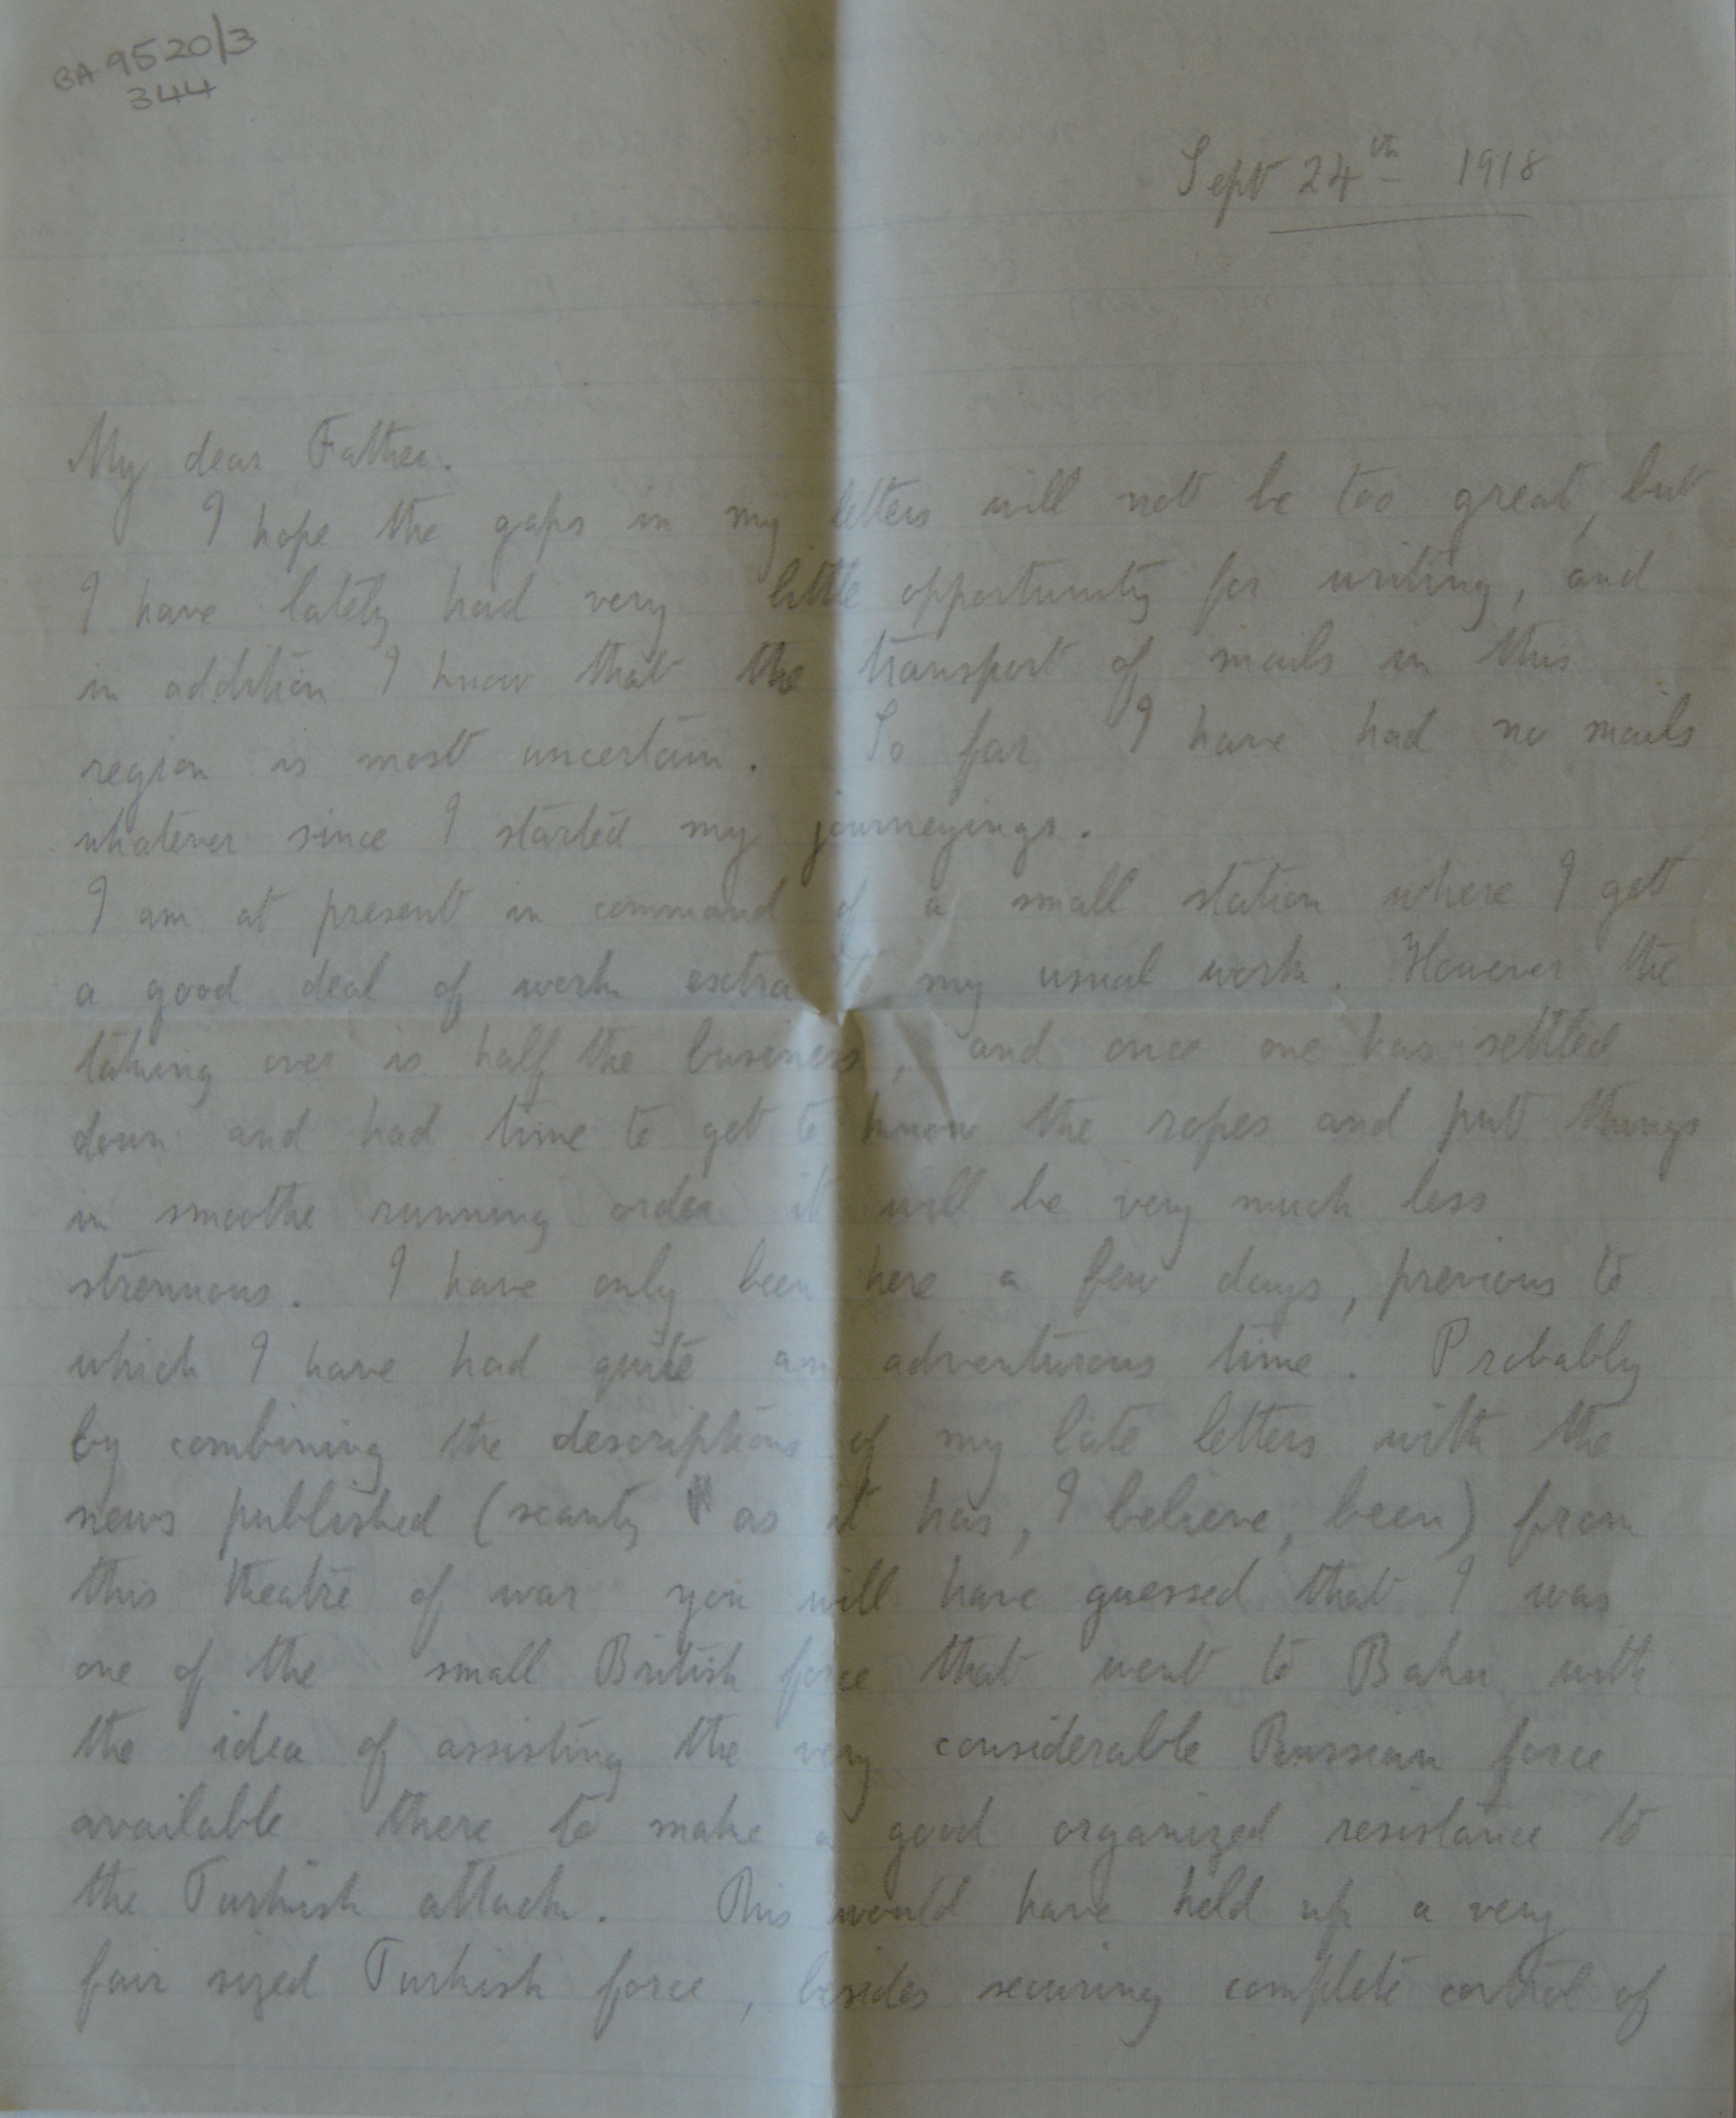 BA 9520/3
344
Sept 24th 1918
My dear Father.
I hope the gaps in my letters will not be too great, but
I have lately had very little opportunity for writing, and
in addition I know that the transport of mails in this
region is most uncertain. So far I have had no mails
whatever since I started my journeyings.
I am at present in command of a small station where I get
a good deal of work extra to my usual work. However the
taking over is half the business, and once one has settled
down and had time to get to know the ropes and put things
in smoothe running order it will be very much less
strenuous. I have only been here a few days, previous to
which I have had quite an adventurous time. Probably
by combining the descriptions of my late letters with the
news published (scanty as it has, I believe, been) from
this theatre of war you will have guessed that I was
one of the small British force that went to Baku with
the idea of assisting the very considerable Russian force
available there to make a good organized resistance to
the Turkish attack. This would have held up a very
fair sized Turkish force, besides securing complete control of